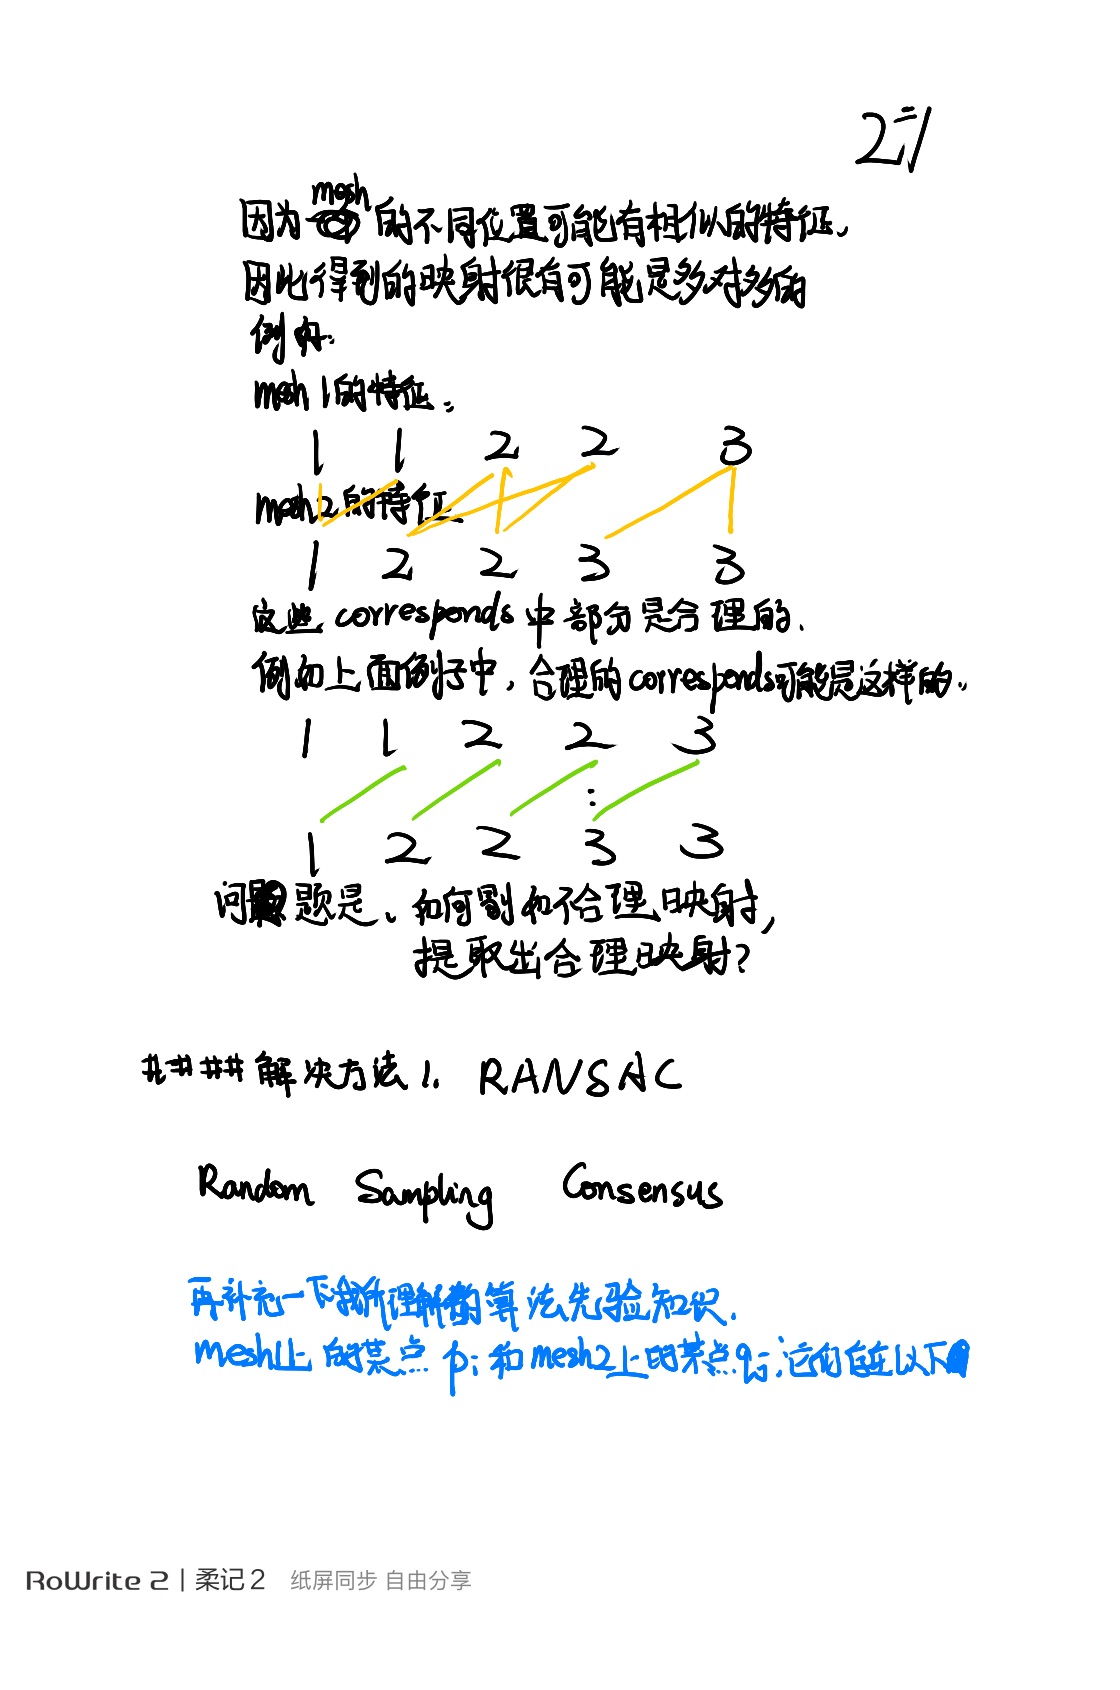 因为mesh的不同位置可能有相似的特征、
因此得到的映射很有可能是多对多的
例如:
mesh1的特征:
1 1 2 2 3
mesh2的特征
1 2 2 3 3
这些corresponds中部分是合理的.
例如上面例子中,合理的corresponds可能是这样的.
1 1 2 2 3
1 2 2 3 3
问题是、如何剔和不合理映射,
提取出合理映射?
####解决方法1. RANSAC
Random Sampling Consensus
再补充一下我所理解的算法先验知识.
mesh1上的某点 pi 和mesh2上的某点qj,它们在以下
RoWrite 2 | 柔记2 纸屏同步 自由分享